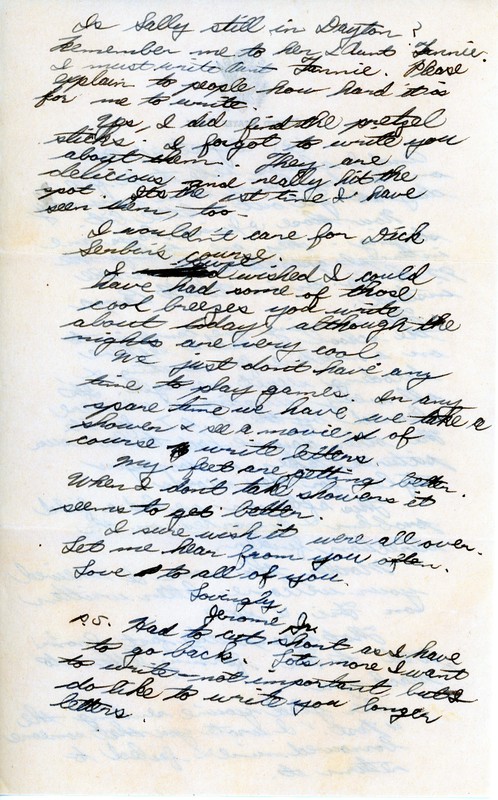 Is Sally still in Dayton?
Remember me to her & Aunt Fannie.
I must write Aunt Fannie. Please
explain to people how hard it is
for me to write.
Yes, I did find the pretzel
sticks. I forgot to write you
about them. They are
delicious and really hit the
spot. Its the 1st time I have
seen them, too.
I wouldn't care for Dick
course.
I wished I could
have had some of those
cool breezes you write
about today, although the
nights are very cool.
We just don't have any
time to play games. In any
spare time we have we take a
shower & see a movie & of
course write letters.
My feet are getting better.
When I don't take showers it
seems to get better.
I sure wish it were all over.
Let me hear from you often.
Love to all of you.
Lovingly,
Jerome Jr.
P.S. Had to cut short as I have
to go back. Lots more I want
to write - not important, but I
do like to write you longer
letters.